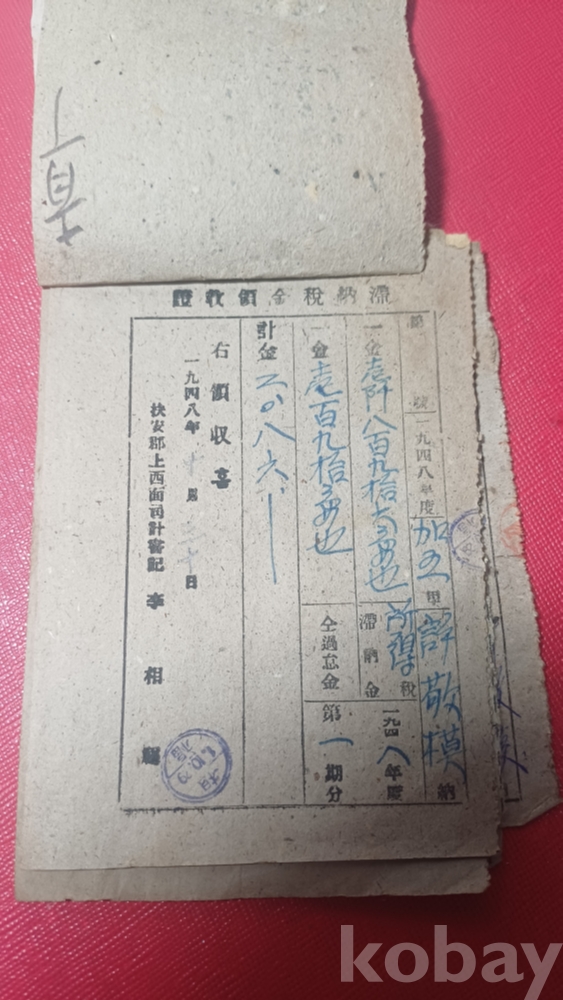 滯納稅金領收證
第 號 一九四八年度 加五里 許敬模 納
一金壹阡八百九拾六円也 所得稅 滯納金 一九四八年度
一金壹百九拾円也 仝過怠金 第一期分
計金二〇八六
右領收喜
一九四八年十月二十日
扶安郡上西面會計書記 李相
kobay